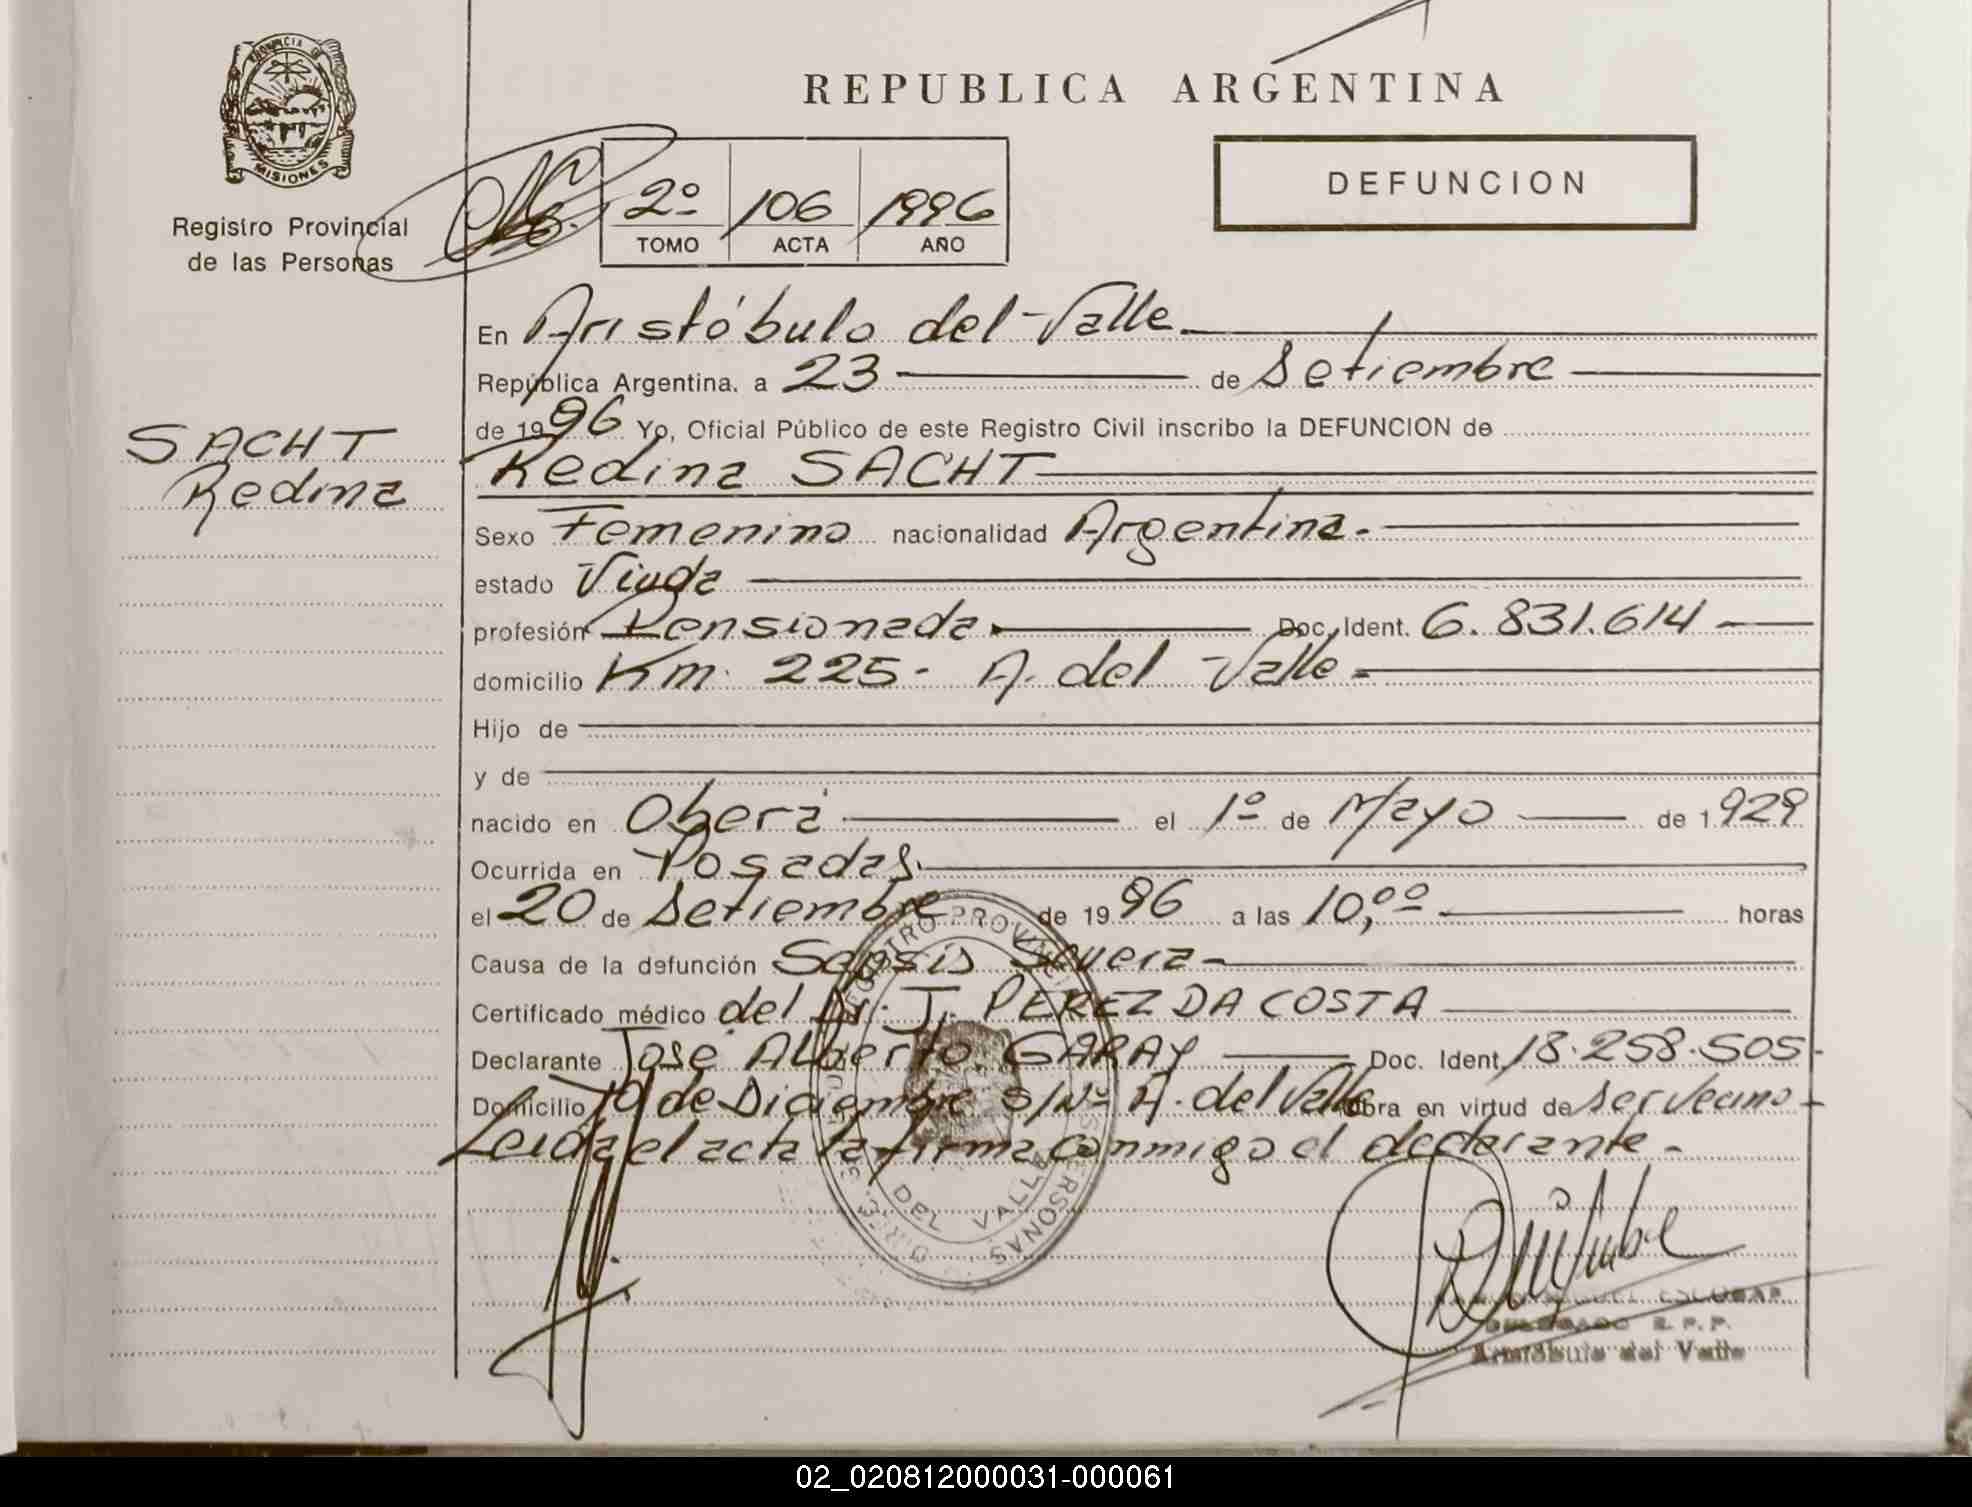 PROVINCIA DE
MISIONES
Registro Provincial
de las Personas
REPUBLICA ARGENTINA
DEFUNCION
2º 106 1996
TOMO ACTA AÑO
SACHT
Redina
En Aristóbulo del Valle
República Argentina, a 23 de Setiembre
de 1996 Yo, Oficial Público de este Registro Civil inscribo la DEFUNCION de
Redina SACHT
Sexo Femenino nacionalidad Argentina.
estado Viuda
profesión Pensionada. Doc. Ident. 6.831.614
domicilio Km. 225- A. del Valle
Hijo de
y de
nacido en Oberá el 1º de Mayo de 1929
Ocurrida en Posadas.
el 20 de Setiembre de 1996 a las 10,ºº horas
Causa de la defunción Sepsis Severa
Certificado médico del Dr. J. PEREZ DA COSTA
Declarante José Alberto GARAY Doc. Ident. 18.258.505-
Domicilio 10 de Diciembre S/Nº A. del Valle obra en virtud de ser vecino-
Leida el acta la firma conmigo el declarante.-
REGISTRO PROVINCIAL PERSONAS
DEL VALLE
ESCOBAR
DELEGADO R. P. P.
Aristóbulo del Valle
02_020812000031-000061